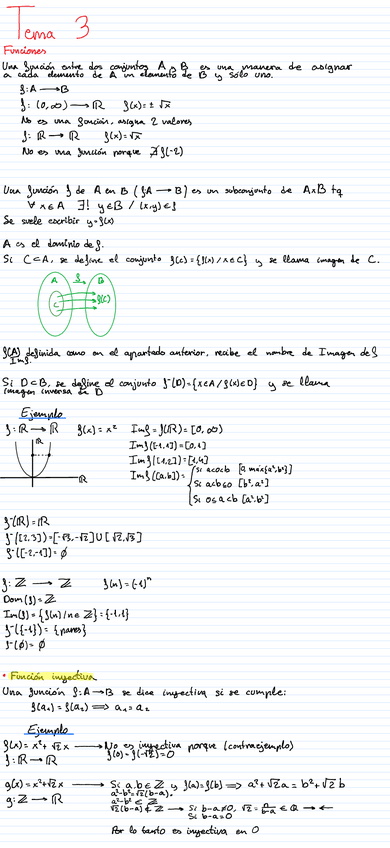 Tema 3
Funciones
Una función entre dos conjuntos A y B es una manera de asignar
a cada elemento de A un elemento de B y sólo uno.
f: A → B
f: (0, ∞) → ℝ f(x) = ± √x
No es una función, asigna 2 valores
f: ℝ → ℝ f(x) = √x
No es una función porque ∄ f(-2)
Una función f de A en B (f: A → B) es un subconjunto de A×B tq
∀ x ∈ A ∃! y ∈ B / (x,y) ∈ f
Se suele escribir y = f(x)
A es el dominio de f.
Si C ⊂ A, se define el conjunto f(C) = {f(x) / x ∈ C} y se llama imagen de C.
A f B
C f(C)
f(A) definida como en el apartado anterior, recibe el nombre de Imagen de f
Im f.
Si D ⊂ B, se define el conjunto f⁻(D) = {x ∈ A / f(x) ∈ D} y se llama
imagen inversa de D
Ejemplo
f: ℝ → ℝ f(x) = x² Im f = f(ℝ) = [0, ∞)
ℝ
ℝ
Im f([-1,1]) = [0,1]
Im f([1,2]) = [1,4]
Im f([a,b]) =
Si a<0<b [0, max{a², b²}]
Si a<b≤0 [b², a²]
Si 0≤a<b [a², b²]
f⁻(ℝ) = ℝ
f⁻([2,3]) = [-√3, -√2] ∪ [√2, √3]
f⁻([-2,-1]) = ∅
f: ℤ → ℤ f(n) = (-1)ⁿ
Dom(f) = ℤ
Im(f) = {f(n) / n ∈ ℤ} = {-1, 1}
f⁻({1}) = {pares}
f⁻(∅) = ∅
• Función inyectiva
Una función f: A → B se dice inyectiva si se cumple:
f(a₁) = f(a₂) ⟹ a₁ = a₂
Ejemplo
f(x) = x² + √2 x → No es inyectiva porque (contraejemplo)
f: ℝ → ℝ f(0) = f(-√2) = 0
g(x) = x² + √2 x → Si a, b ∈ ℤ y f(a) = f(b) ⟹ a² + √2 a = b² + √2 b
g: ℤ → ℝ a² - b² = √2(b-a).
a² - b² ∈ ℤ
√2(b-a) ∉ ℤ → Si b-a ≠ 0, √2 = a/b-a ∈ ℚ → ←
Si b-a = 0
Por lo tanto es inyectiva en 0